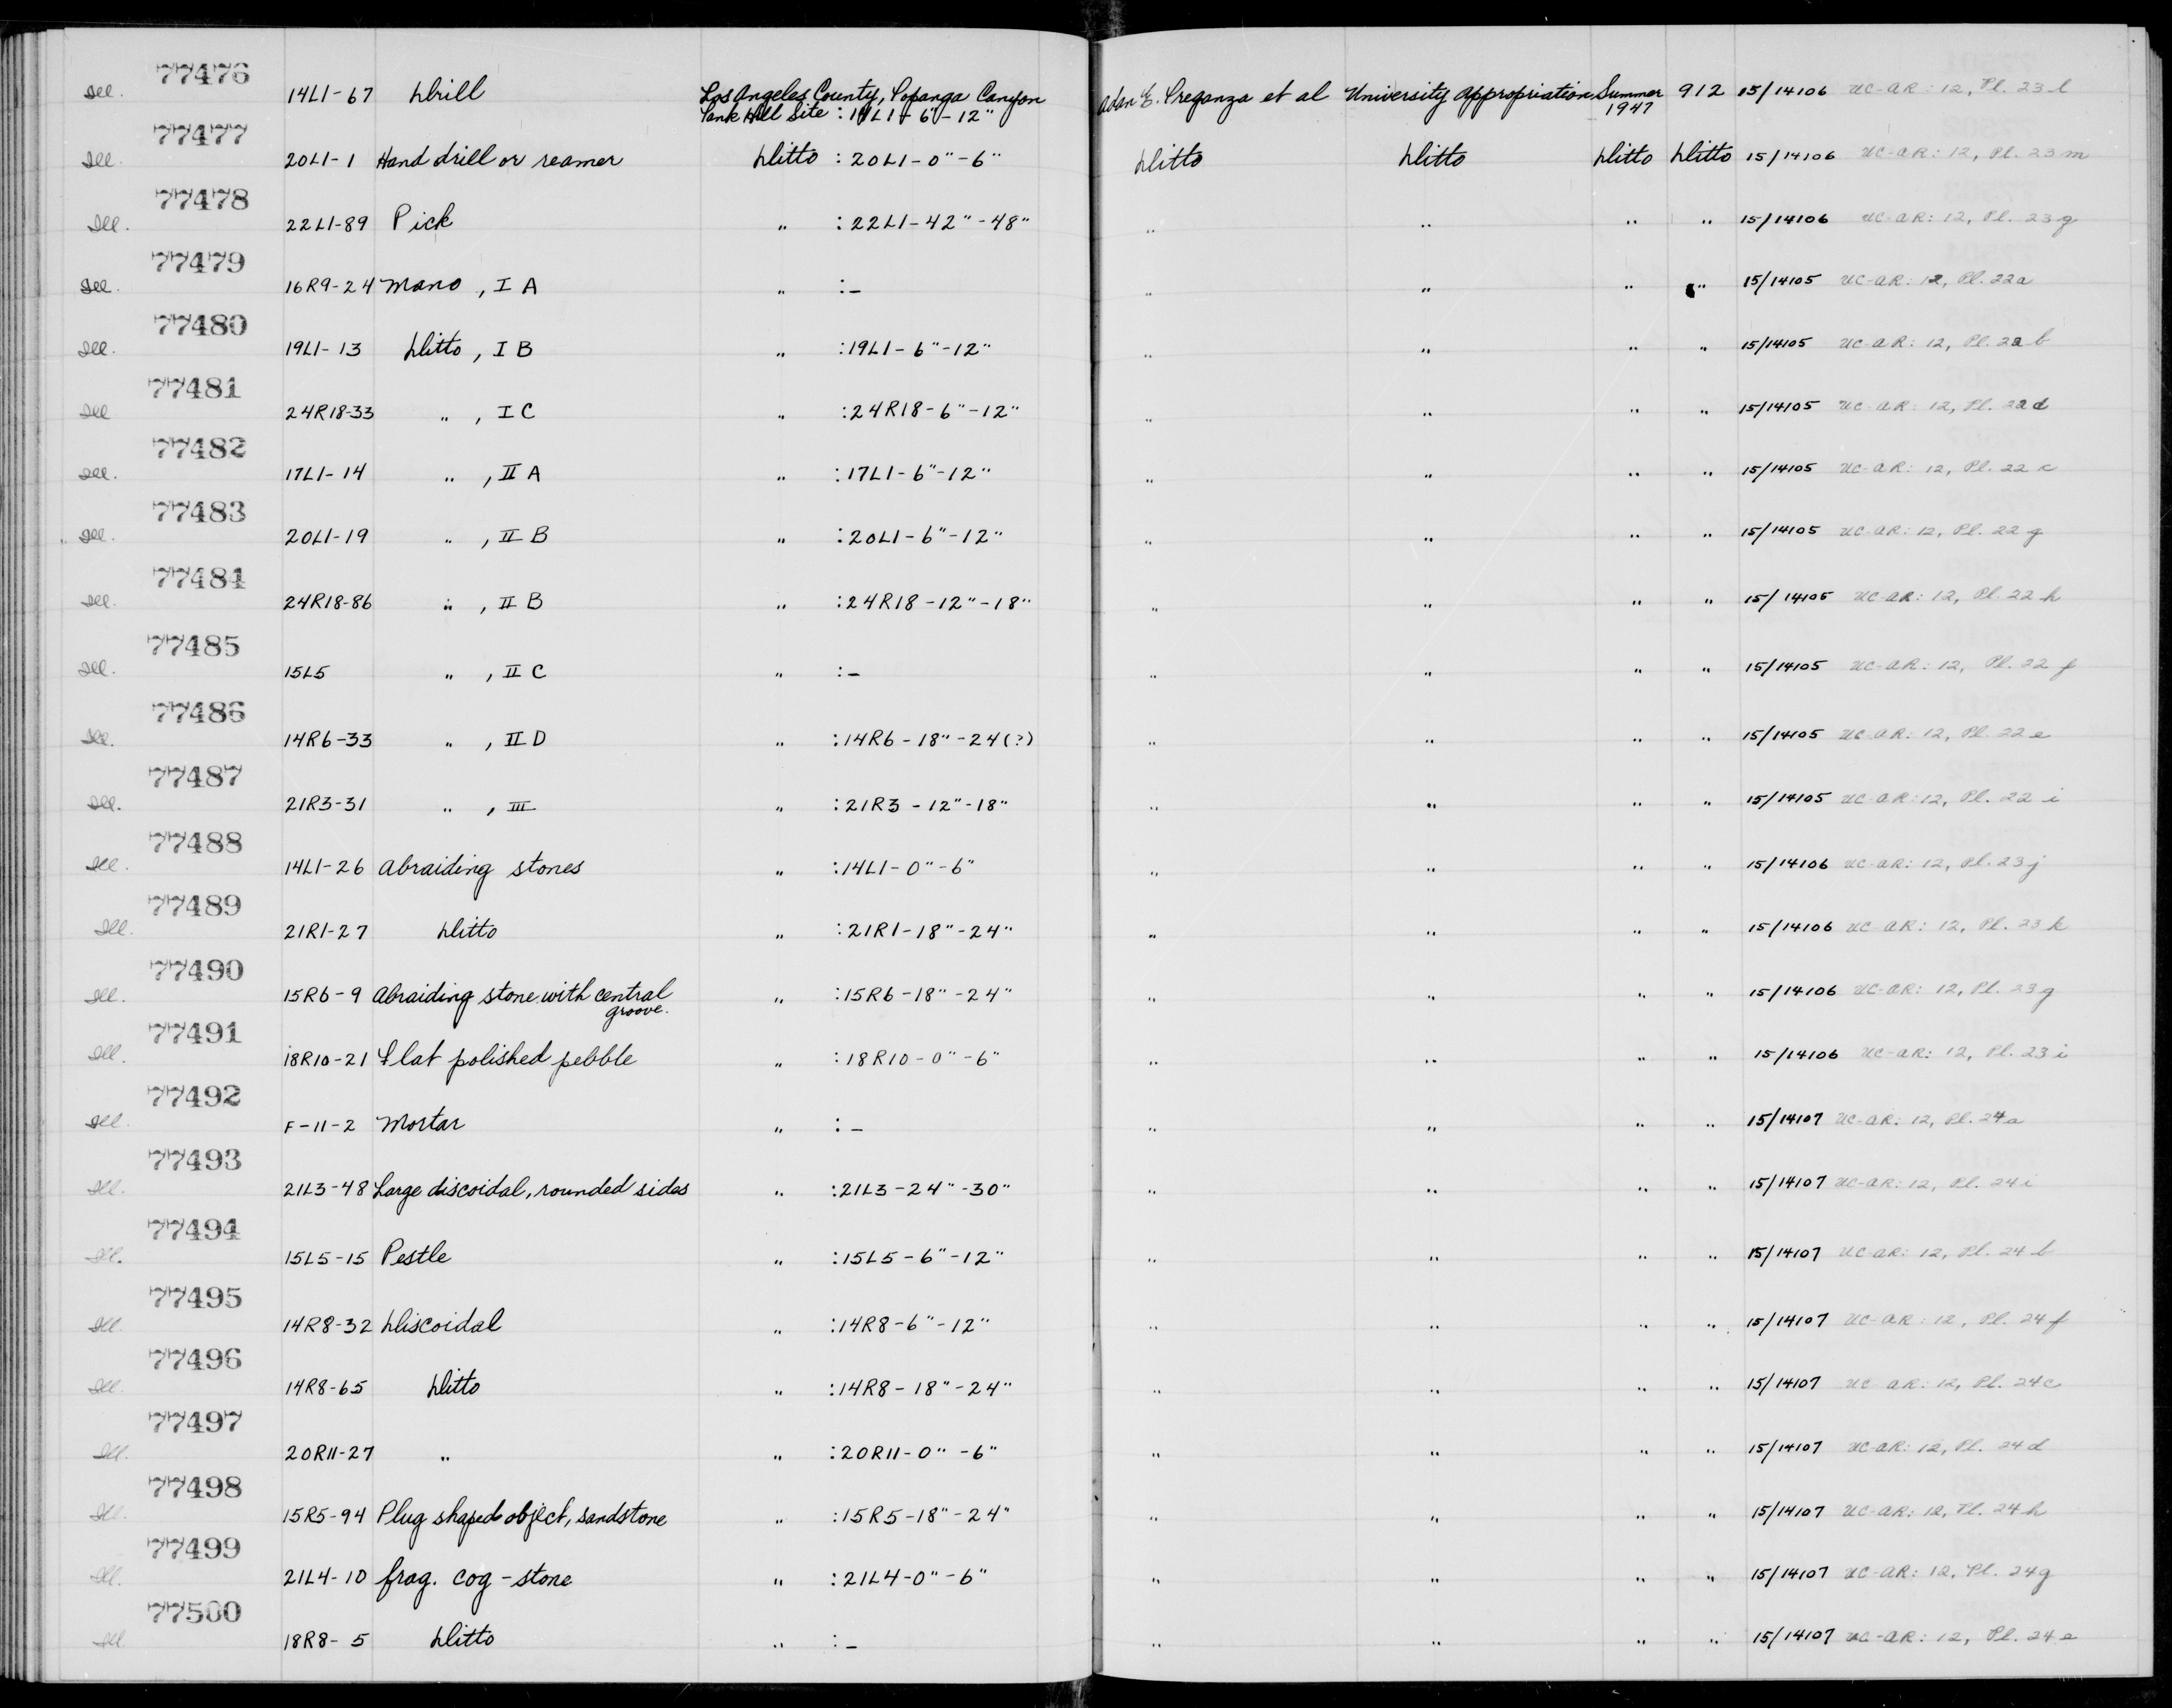 77476
Ill. 14L1-67 Drill Los Angeles County, Topanga Canyon Adan E. Treganza et al University appropriation Summer 912 15/14106 UC-AR: 12, Pl. 23 l
Tank Hill Site : 14L1-6"-12" 1947
77477
Ill. 20L1-1 Hand drill or reamer Ditto : 20L1-0"-6" Ditto Ditto Ditto Ditto 15/14106 UC-AR: 12, Pl. 23 m
77478
Ill. 22L1-89 Pick " : 22L1-42"-48" " " " " 15/14106 UC-AR: 12, Pl. 23 g
77479
Ill. 16R9-24 Mano, I A " : – " " " " 15/14105 UC-AR: 12, Pl. 22a
77480
Ill. 19L1-13 Ditto, I B " : 19L1-6"-12" " " " " 15/14105 UC-AR: 12, Pl. 22 b
77481
Ill 24R18-33 " , I C " : 24R18-6"-12" " " " " 15/14105 UC-AR: 12, Pl. 22 d
77482
Ill. 17L1-14 " , II A " : 17L1-6"-12" " " " " 15/14105 UC-AR: 12, Pl. 22 c
77483
Ill. 20L1-19 " , II B " : 20L1-6"-12" " " " " 15/14105 UC-AR: 12, Pl. 22 g
77484
Ill. 24R18-86 " , II B " : 24R18-12"-18" " " " " 15/14105 UC-AR: 12, Pl. 22 h
77485
Ill. 15L5 " , II C " : – " " " " 15/14105 UC-AR: 12, Pl. 22 f
77486
Ill. 14R6-33 " , II D " : 14R6-18"-24(?) " " " " 15/14105 UC-AR: 12, Pl. 22 e
77487
Ill. 21R3-31 " , III " : 21R3-12"-18" " " " " 15/14105 UC-AR: 12, Pl. 22 i
77488
Ill. 14L1-26 Abraiding stones " : 14L1-0"-6" " " " " 15/14106 UC-AR: 12, Pl. 23 j
77489
Ill. 21R1-27 Ditto " : 21R1-18"-24" " " " " 15/14106 UC-AR: 12, Pl. 23 k
77490
Ill. 15R6-9 Abraiding stone with central " : 15R6-18"-24" " " " " 15/14106 UC-AR: 12, Pl. 23 g
groove.
77491
Ill. 18R10-21 Flat polished pebble " : 18R10-0"-6" " " " " 15/14106 UC-AR: 12, Pl. 23 i
77492
Ill. F-11-2 Mortar " : – " " " " 15/14107 UC-AR: 12, Pl. 24a
77493
Ill. 21L3-48 Large discoidal, rounded sides " : 21L3-24"-30" " " " " 15/14107 UC-AR: 12, Pl. 24 i
77494
Ill. 15L5-15 Pestle " : 15L5-6"-12" " " " " 15/14107 UC-AR: 12, Pl. 24 b
77495
Ill. 14R8-32 Discoidal " : 14R8-6"-12" " " " " 15/14107 UC-AR: 12, Pl. 24 f
77496
Ill. 14R8-65 Ditto " : 14R8-18"-24" " " " " 15/14107 UC-AR: 12, Pl. 24c
77497
Ill. 20R11-27 " " : 20R11-0"-6" " " " " 15/14107 UC-AR: 12, Pl. 24 d
77498
Ill. 15R5-94 Plug shaped object, sandstone " : 15R5-18"-24" " " " " 15/14107 UC-AR: 12, Pl. 24 h
77499
Ill. 21L4-10 frag. cog-stone " : 21L4-0"-6" " " " " 15/14107 UC-AR: 12, Pl. 24g
77500
Ill 18R8-5 Ditto " : – " " " " 15/14107 UC-AR: 12, Pl. 24 e